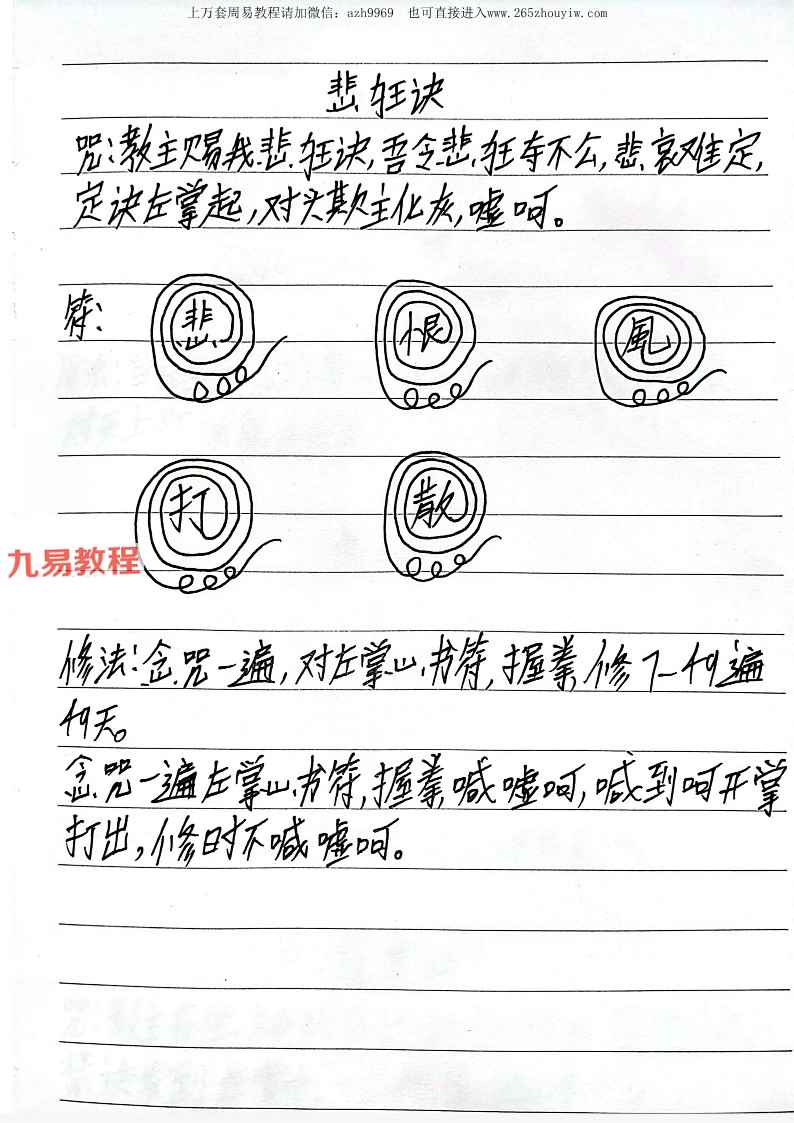 上万套周易教程请加微信：azh9969 也可直接进入www.265zhouyiw.com
悲狂诀
咒：教主赐我悲狂诀，吾令悲狂夺不么，悲哀难定，
定诀左掌起，对头欺主化灰，嘘呵。
符：
悲 恨 風
打 散
九易教程
修法：念咒一遍，对左掌心书符，握拳，修7一49遍
49天。
念咒一遍左掌心书符，握拳喊嘘呵，喊到呵开掌
打出，修时不喊嘘呵。